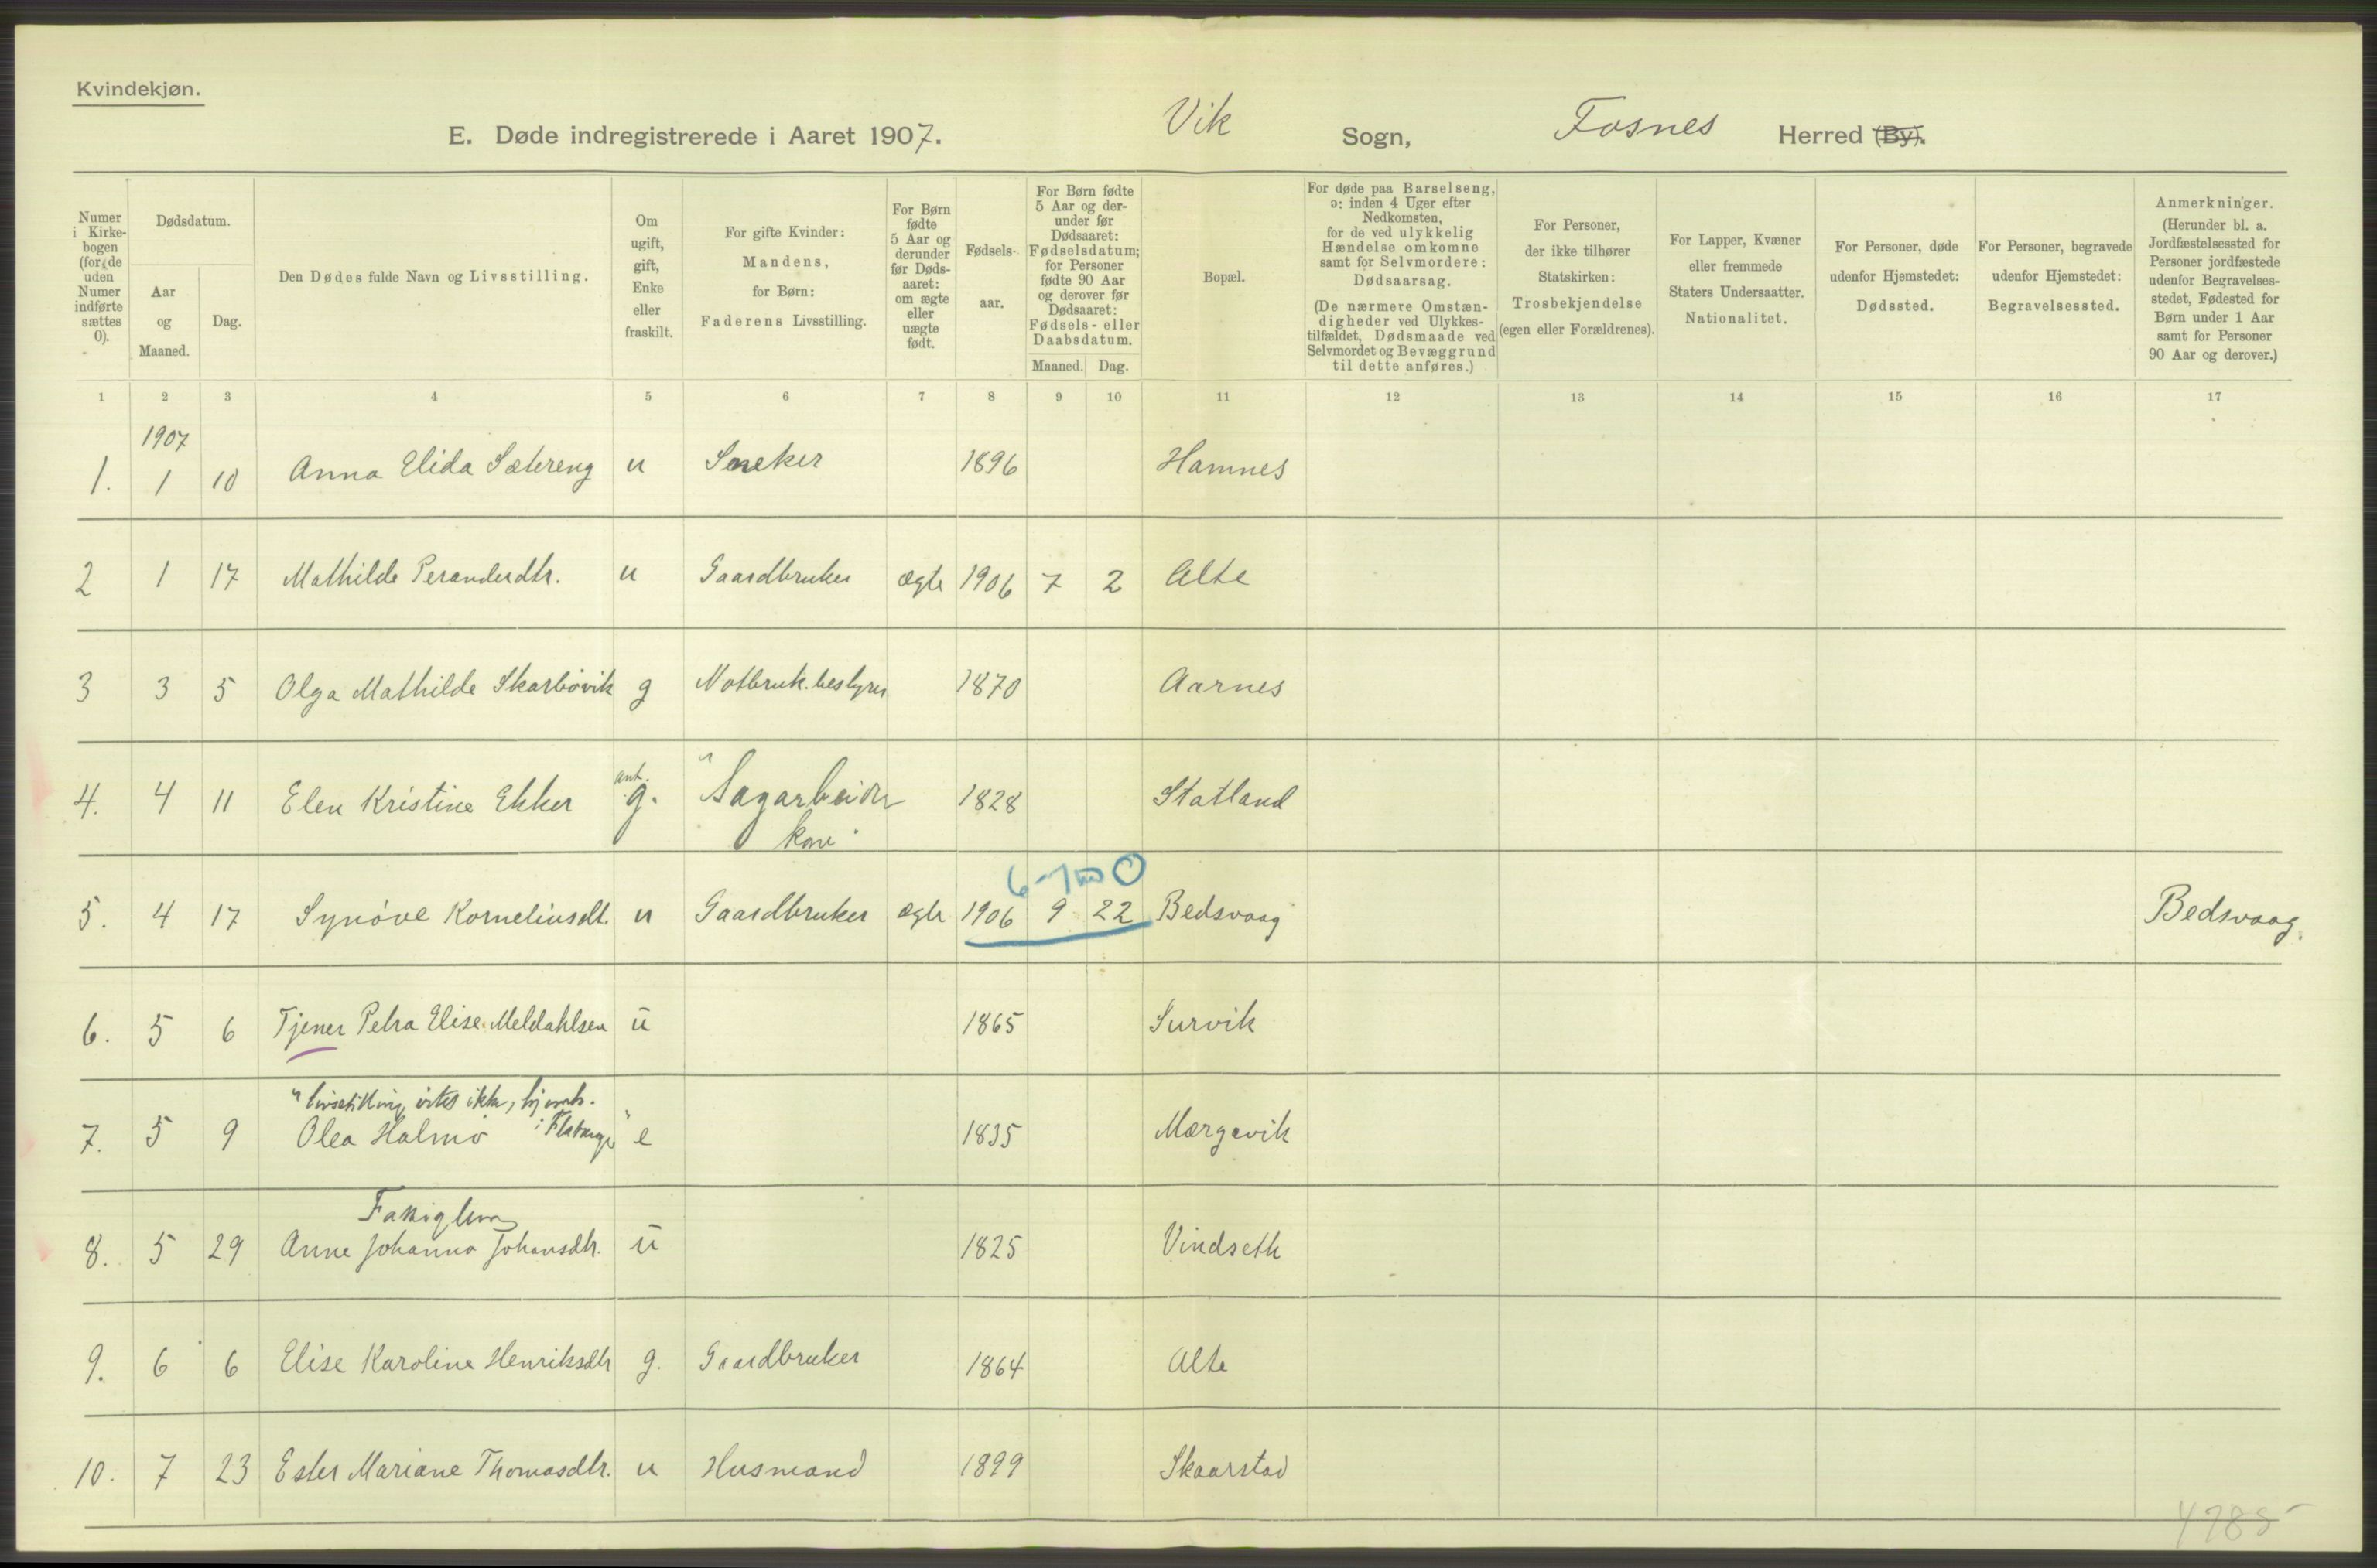 Kvindekjøn.
E. Døde indregistrerede i Aaret 1907. Vik Sogn, Fosnes Herred (By).
Numer i Kirkebogen (for de uden Numer indførte sættes 0).
Dødsdatum.
Aar og Maaned.
Dag.
Den Dødes fulde Navn og Livsstilling.
Om ugift, gift, Enke eller fraskilt.
For gifte Kvinder: Mandens, for Børn: Faderens Livsstilling.
For Børn fødte 5 Aar og derunder før Dødsaaret: om ægte eller uægte født.
Fødselsaar.
For Børn fødte 5 Aar og derunder før Dødsaaret: Fødselsdatum; for Personer fødte 90 Aar og derover før Dødsaaret: Fødsels- eller Daabsdatum.
Maaned. Dag.
Bopæl.
For døde paa Barselseng, ɔ: inden 4 Uger efter Nedkomsten, for de ved ulykkelig Hændelse omkomne samt for Selvmordere: Dødsaarsag.
(De nærmere Omstændigheder ved Ulykkestilfældet, Dødsmaade ved Selvmordet og Bevæggrund til dette anføres.)
For Personer, der ikke tilhører Statskirken: Trosbekjendelse (egen eller Forældrenes).
For Lapper, Kvæner eller fremmede Staters Undersaatter. Nationalitet.
For Personer, døde udenfor Hjemstedet: Dødssted.
For Personer, begravede udenfor Hjemstedet: Begravelsessted.
Anmerkninger. (Herunder bl. a. Jordfæstelsessted for Personer jordfæstede udenfor Begravelsesstedet, Fødested for Børn under 1 Aar samt for Personer 90 Aar og derover.)
1 2 3 4 5 6 7 8 9 10 11 12 13 14 15 16 17
1907
1. 1 10 Anna Elida Sætereng u Sneker 1896 Hamnes
2 1 17 Mathilde Peranderdtr. u Gaardbruker ægte 1906 7 2 Alte
3 3 5 Olga Mathilde Skarbövik g Notbruk.bestyrer 1870 Aarnes
ant.
4. 4 11 Elen Kristine Ekker g. "Sagarbeider 1828 Statland
kone"
6-7 0
5. 4 17 Synöve Korneliusdt. u Gaardbruker ægte 1906 9 22 Bedsvaag Bedsvaag.
6. 5 6 Tjener Petra Elise Meldahlsen u 1865 Survik
"livsstilling vites ikke, hjemh.
7. 5 9 Olea Halmö i Flatanger" e 1835 Mærgevik
Fattiglem
8. 5 29 Anne Johanna Johansdtr. u 1825 Vindseth
9. 6 6 Elise Karoline Henriksdtr g. Gaardbruker 1864 Alte
10. 7 23 Ester Mariane Thomasdtr. u Husmand 1899 Skaarstad
4785